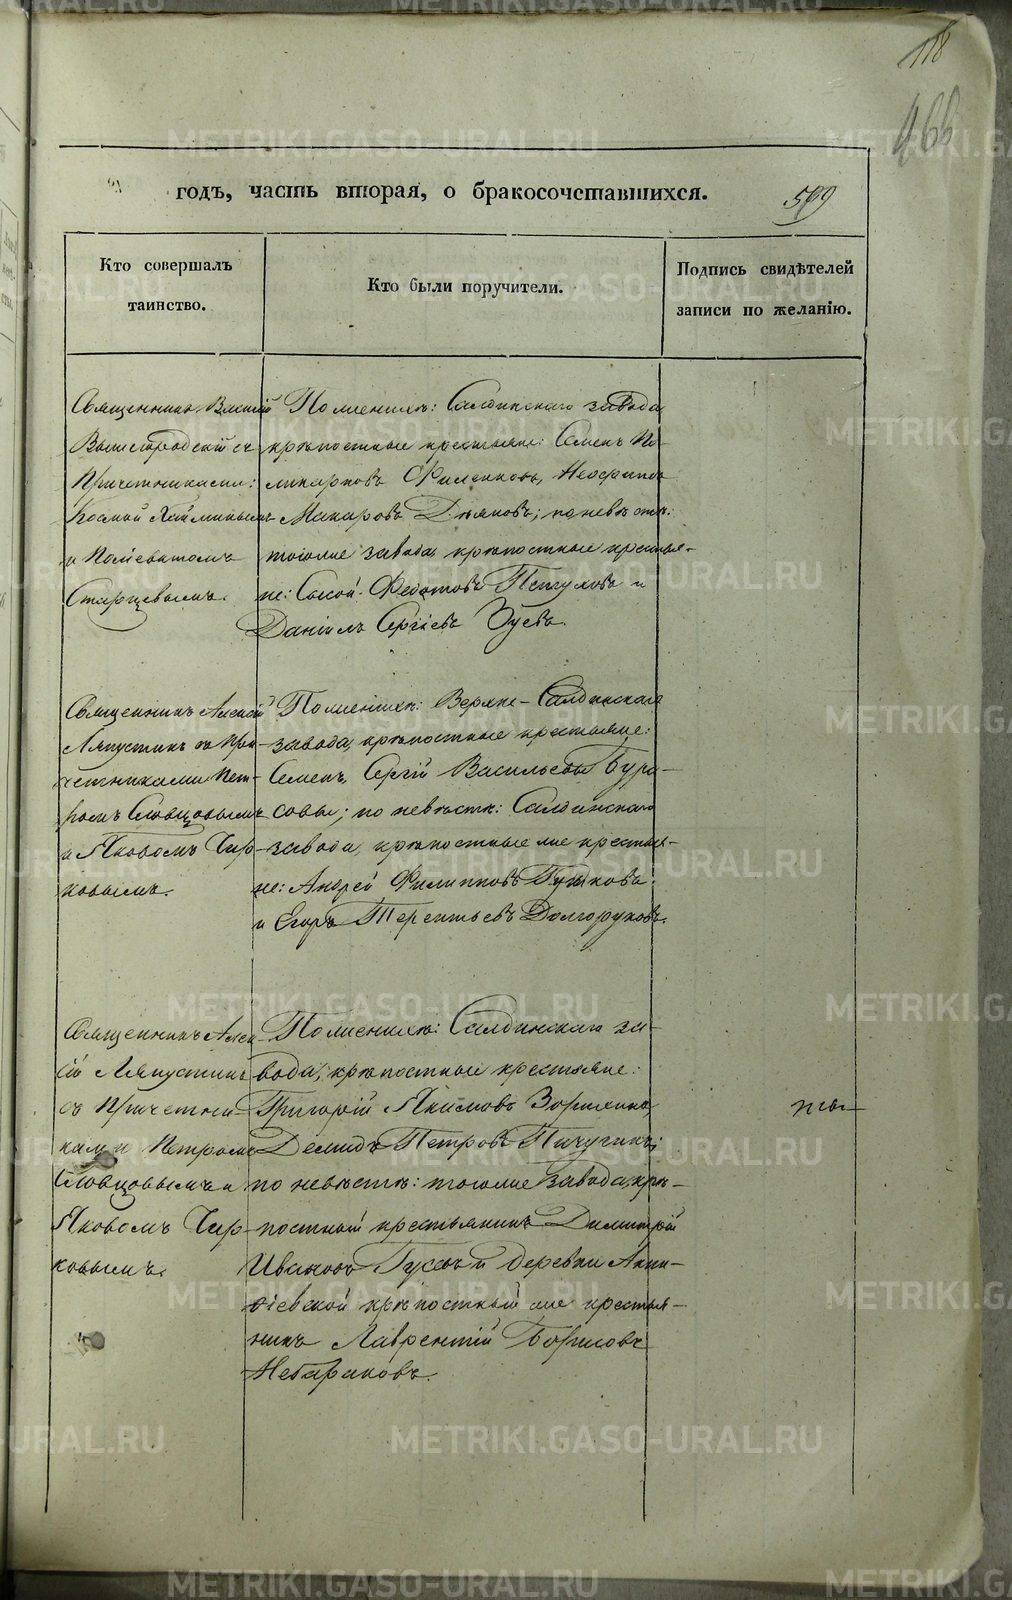 118
466
годъ, часть вторая, о бракосочетавшихся.
599
Кто совершалъ
таинство.
Кто были поручители.
Подпись свидѣтелей
записи по желанію.
Священникъ
съ
Причетниками:
Космой
и
Старцевымъ.
По женихѣ: Салдинскаго завода
крѣпостные крестьяне: Семенъ По-
ликарповъ Филенковъ,
Макаровъ Дьяковъ; по невѣстѣ:
тогоже завода крѣпостные крестья-
не: Сысой Федотовъ Петуховъ и
Даніилъ Сергіевъ Зуевъ.
Священникъ Алексій
Ляпустинъ съ При-
четниками Пет-
ромъ Словцовымъ
и Яковомъ Чир-
ковымъ.
По женихѣ: Верхне-Салдинскаго
завода, крѣпостные крестьяне:
Семенъ, Сергій Васильевы Бура-
совы; по невѣстѣ: Салдинскаго
завода, крѣпостные же крестья-
не: Андрей Филипповъ
и Егоръ Терентьевъ Долгоруковъ.
Священникъ Алек-
сій Ляпустинъ
съ Причетни-
ками Петромъ
Словцовымъ и
Яковомъ Чир-
ковымъ.
По женихѣ: Салдинскаго за-
вода, крѣпостные крестьяне:
Григорій Якимовъ Зорихинъ,
Демидъ Петровъ Пичугинъ;
по невѣстѣ: тогоже завода, крѣ-
постный крестьянинъ Димитрій
Ивановъ Гусевъ и деревни Акин-
фіевской крѣпостный же крестья-
нинъ Лаврентій Борисовъ
METRIKI.GASO-URAL.RU